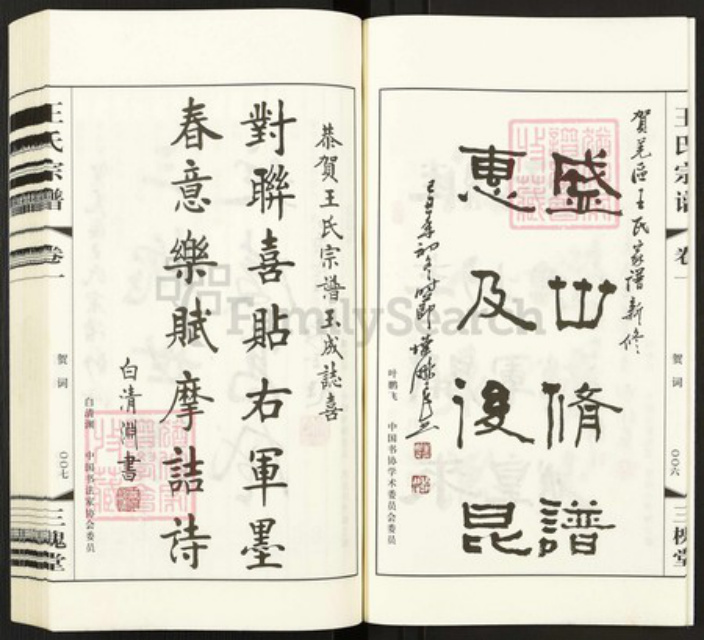 王氏宗谱
卷一
贺词
〇〇六
三槐堂
賀芜区王氏家譜新修
盛世脩譜
惠及後昆
叶鹏飞 中国书协学术委员会委员
恭賀王氏宗譜玉成誌喜
對聯喜貼右軍墨
春意樂賦摩詰詩
白清淵書
白清渊 中国书法家协会会员
王氏宗谱
卷一
贺词
〇〇七
三槐堂
FamilySearch